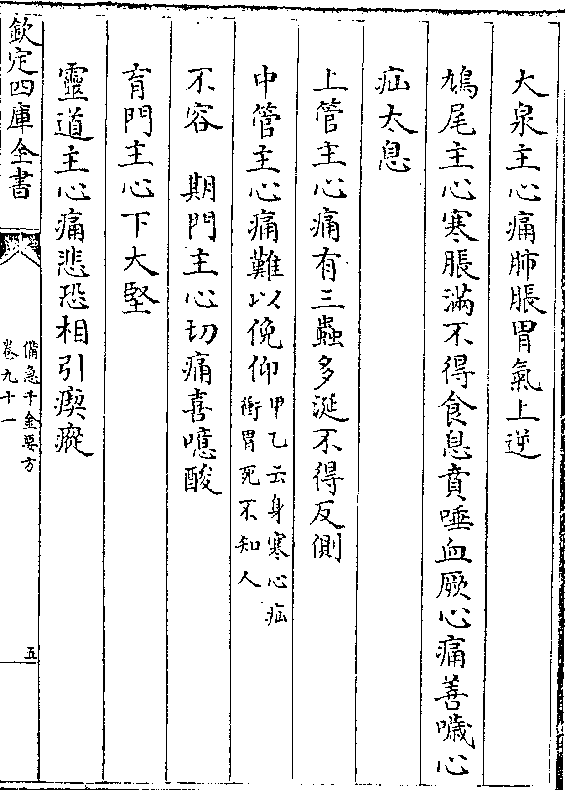 大泉主心痛肺脹胃氣上逆
鳩尾主心寒脹滿不得食息賁唾血厥心痛善噦心
疝太息
上管主心痛有三蟲多涎不得反側
中管主心痛難以俛仰甲乙云身寒心疝衝胃死不知人
不容　期門主心切痛喜噫酸
肓門主心下大堅
靈道主心痛悲恐相引瘈瘲
欽定四庫全書
備急千金要方
卷九十一
五